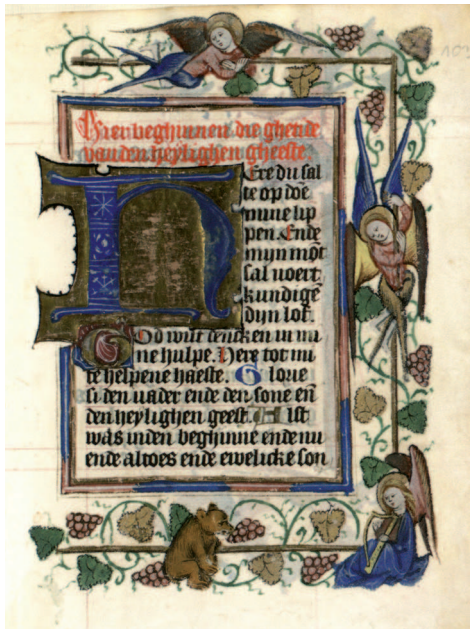 Hier beghinnen die ghetide
van den heylighen gheeste.
Here du sal
te op doē
mine lip
pen. Ende
mijn mōt
sal voert
kundigē
dijn lof.
God wilt dencken in mi
ne hulpe. Here tot mi
te helpene haeste. Glorie
si den vader ende den sone eñ
den heylighen geest. Als ist
was inden beghinne ende nu
ende altoes ende ewelicke son